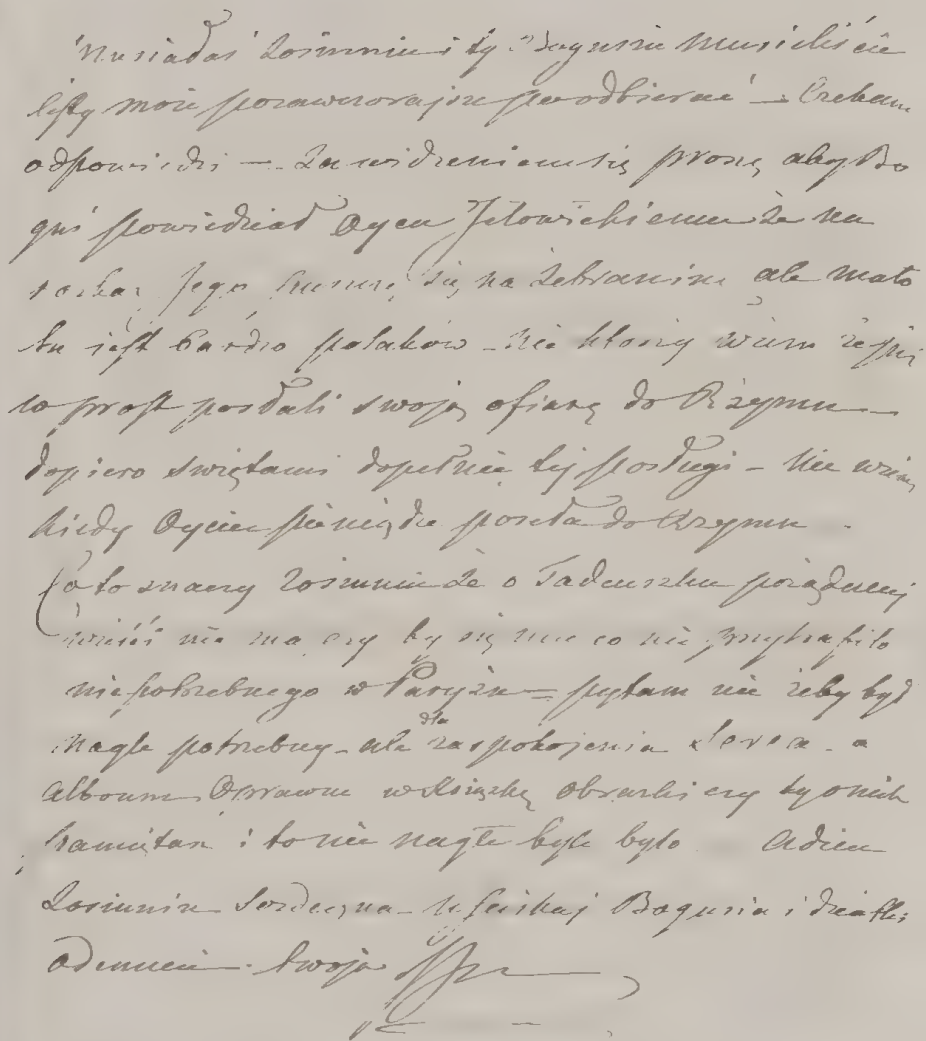 Musiałaś Zosiuniu i ty Bogusiu Musieliście
listy moje poodbierać — Czekam
odpowiedzi — Za widzeniem się proszę aby Bo
guś powiedział Oycu Jełowickiemu że na
rozkaz Jego się na żebraninę ale mało
tu jest bardzo polaków — nie którzy wiem że już
w prost posłali swoją ofiarę do Rzymu —
dopiero świętami dopełnię tej posługi — nie wiem
kiedy Oyciec pieniądze poszle do Rzymu .
Co to znaczy Zosiuniu że o Tadeuszku porządnej
wieści nie ma czy by się mu co nie przytrafiło
niepotrzebnego w Paryżu — pytam nie żeby był
nagle potrzebny — ale dla zaspokojenia Serca — a
Album Oprawne w Książkę obrazki czy ty o nich
pamiętasz i to nie nagle byle było Adieu
Zosiuniu Serdeczna — uściskaj Bogusia i dziatki
odemnie — twoja